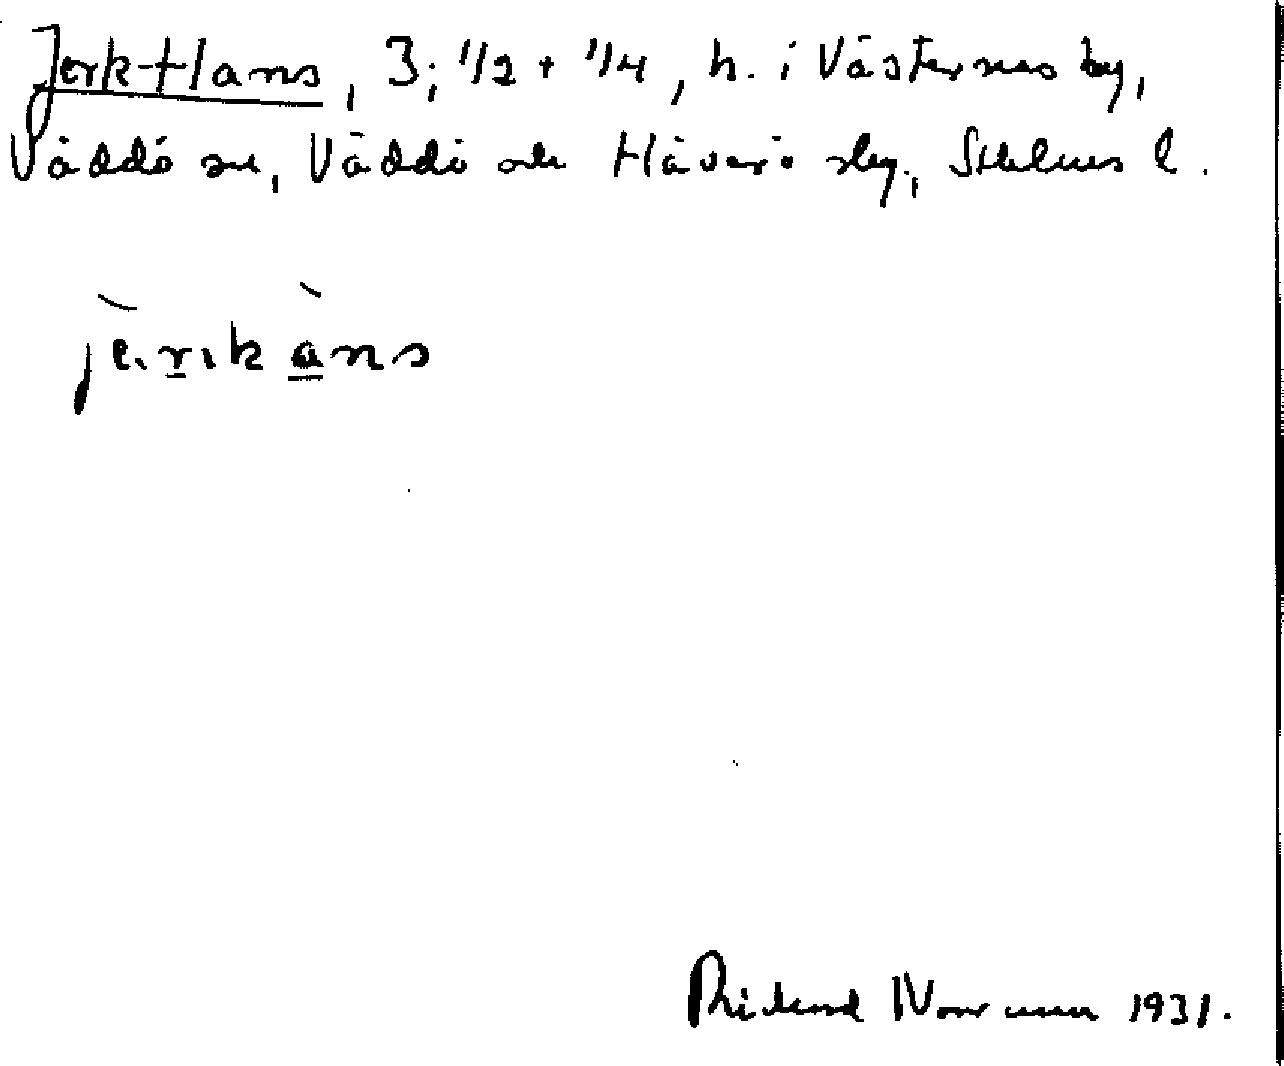 Jerk-Hans, 3; 1/2 + 1/4, h. i Västernäs by,
Väddö sn, Väddö och Häverö slg, Sthlms l.
jè.rikàns
Richard Norrman 1931.